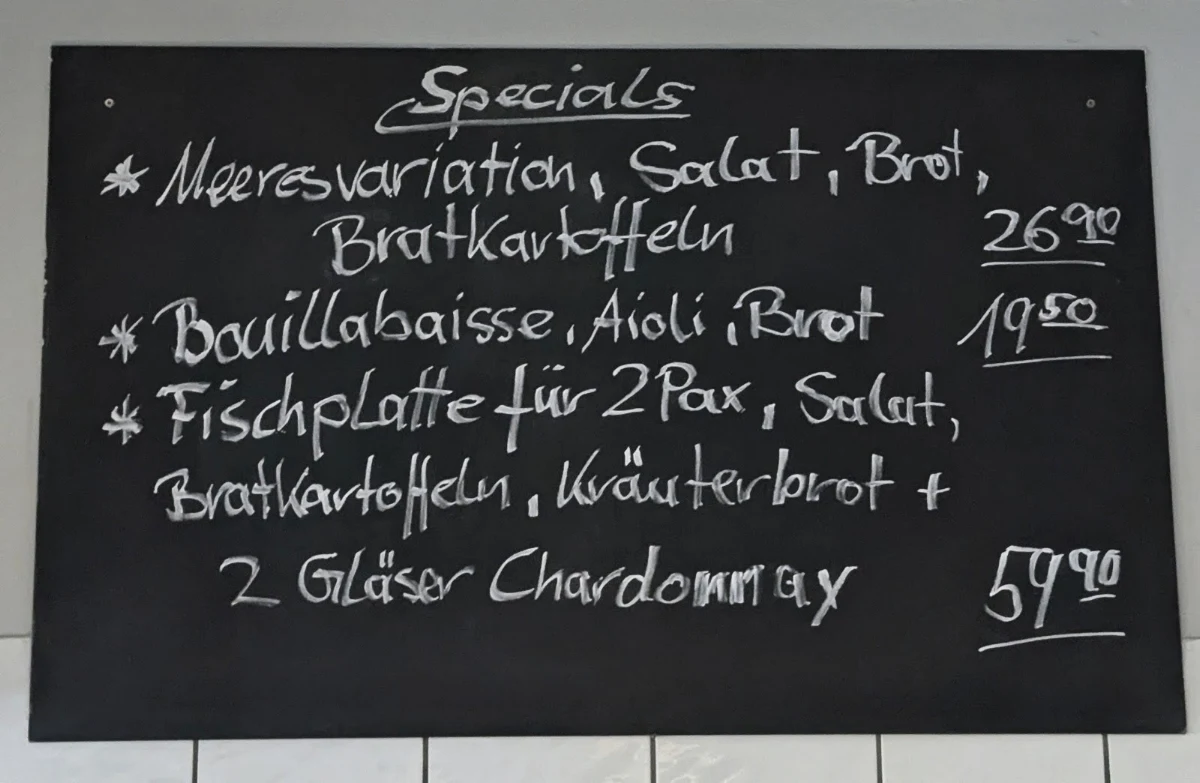 Specials
* Meeresvariation, Salat, Brot,
Bratkartoffeln 26 90
* Bouillabaisse, Aioli, Brot 19 50
* Fischplatte für 2 Pax, Salat,
Bratkartoffeln, Kräuterbrot +
2 Gläser Chardonnay 59 90